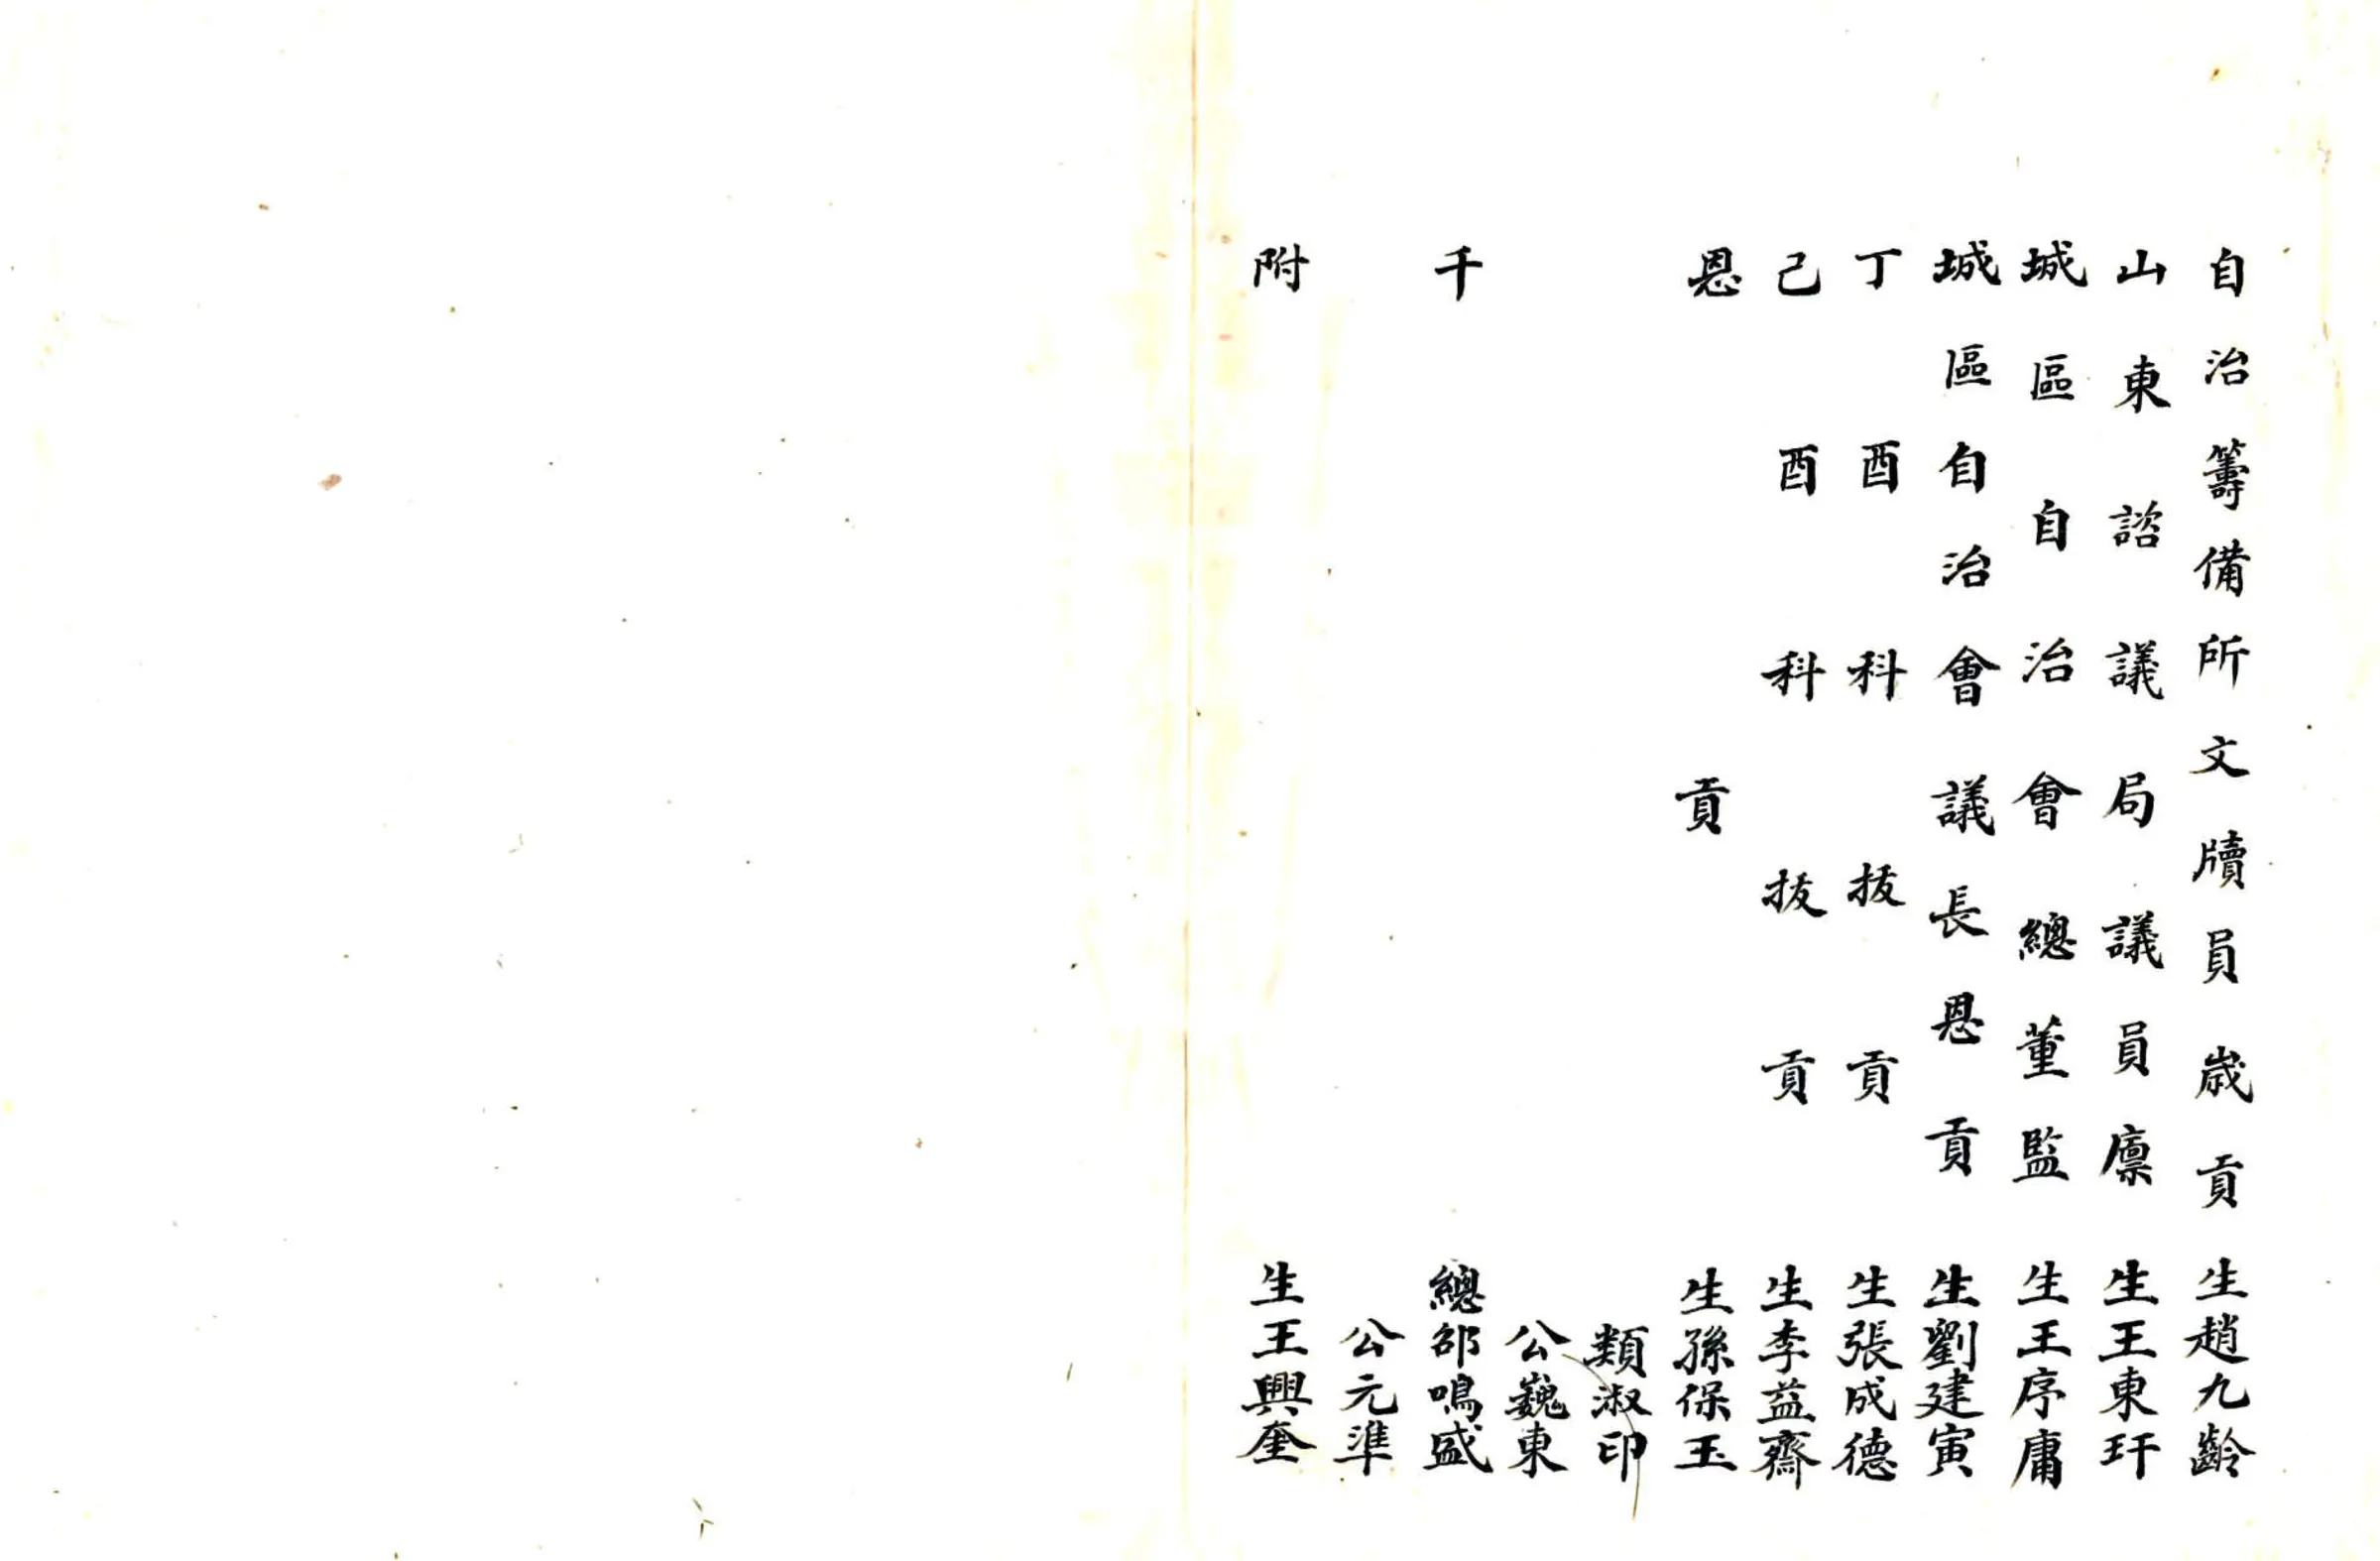 自治籌備所文牘員歲貢生趙九齡
山東諮議局議員廪生王東玕
城區自治會總董監生王序庸
城區自治會議長恩貢生劉建寅
丁酉科拔貢生張成德
己酉科拔貢生李益齋
恩貢生孫保玉
類淑印
公巍東
千總邵鳴盛
公元準
附生王興奎